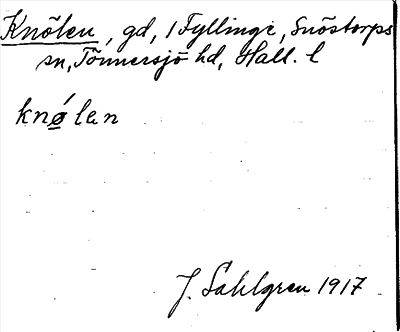 Knölen, gd, i Fyllinge, Snöstorps
sn, Tönnersjö hd, Hall. l
knǿlan
J. Sahlgren 1917